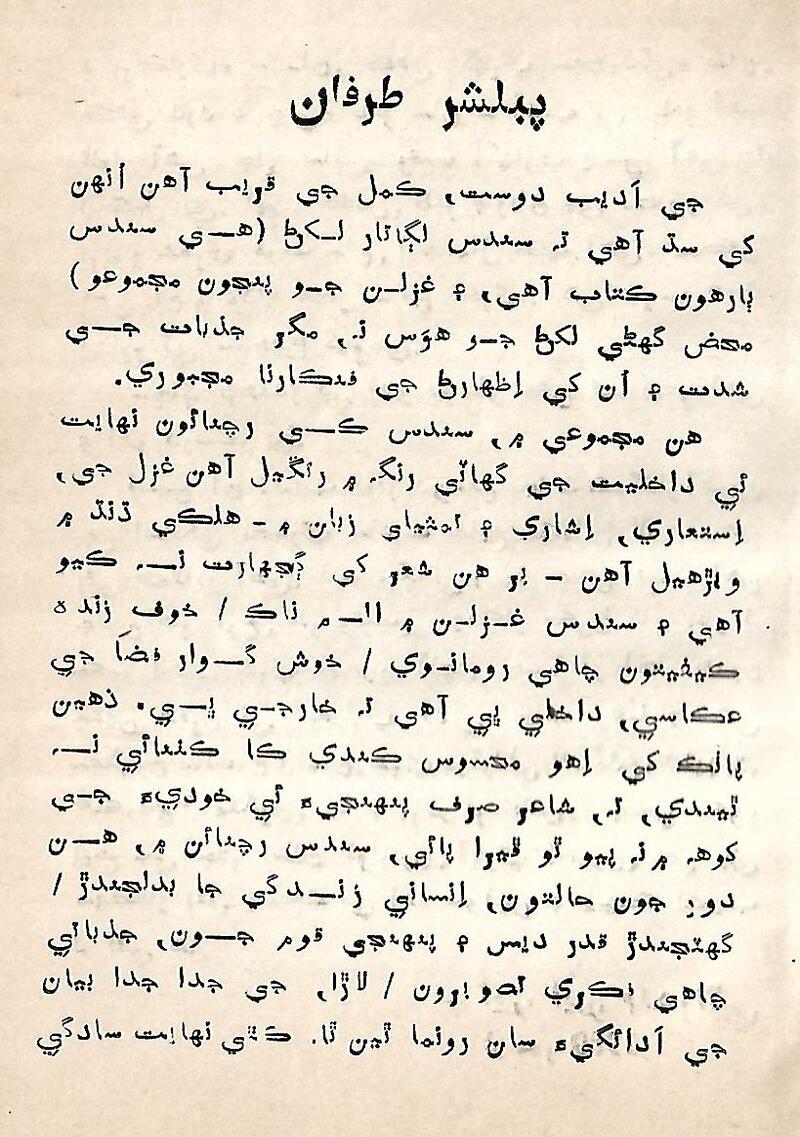 پبلشر طرفان
جي اَديب دوست، ڪمل جي قريب آهن اُنهن
کي سڌ آهي تہ سندس لڳاتار لـکڻ (هـي سندس
ٻارهون ڪتاب آهي، ۽ غزلـن جـو پنجون مجموعو)
محض گهڻي لکڻ جـو هوَس نہ، مگر جذبات جـي
شدت ۽ اُن کي اِظهارڻ جي فنڪارنا مجبوري.
هن مجموعي ۾، سندس ڪـي رچنائون نهايت
ئي داخليت جي گهاٽي رنگ ۾ رنڱيل آهن غزل جي،
اِستعاري، اِشاري ۽ تمثيلي زبان ۾ - هلڪي ڌنڌ ۾
ويڙهيل آهن - پر هن شعر کي ڳجهارت نـہ ڪيو
آهي ۽ سندس غـزلـن ۾ المـ ناڪ / خوف زنده
ڪيفيتون چاهي رومانـوي / خوش گـوار فضاَ جي
عڪاسي، داخلي ٻي آهي تہ خارجـي ٻـي. ذهين
پاٺڪ کي اِهو محسوس ڪندي ڪا ڪٺنائي نـہ
ٿيندي، تہ، شاعر صرف پنهنجيءَ ئي خوديءَ جـي
کوهہ ۾ نہ پيو ٿو ڦيرا پائي، سندس رچنائن ۾، هـن
دور جون حالتون، اِنساني زنـدگي جا بدلجندڙ /
گهٽجندڙ قدر ديس ۽ پنهنجي قوم جـون، جذباتي
چاهي فڪري تصويرون / لاڙا، جي جدا جدا بيان
جي اَدائگيءَ سان رونما ٿين ٿا. ڪٿي نهايت سادگي